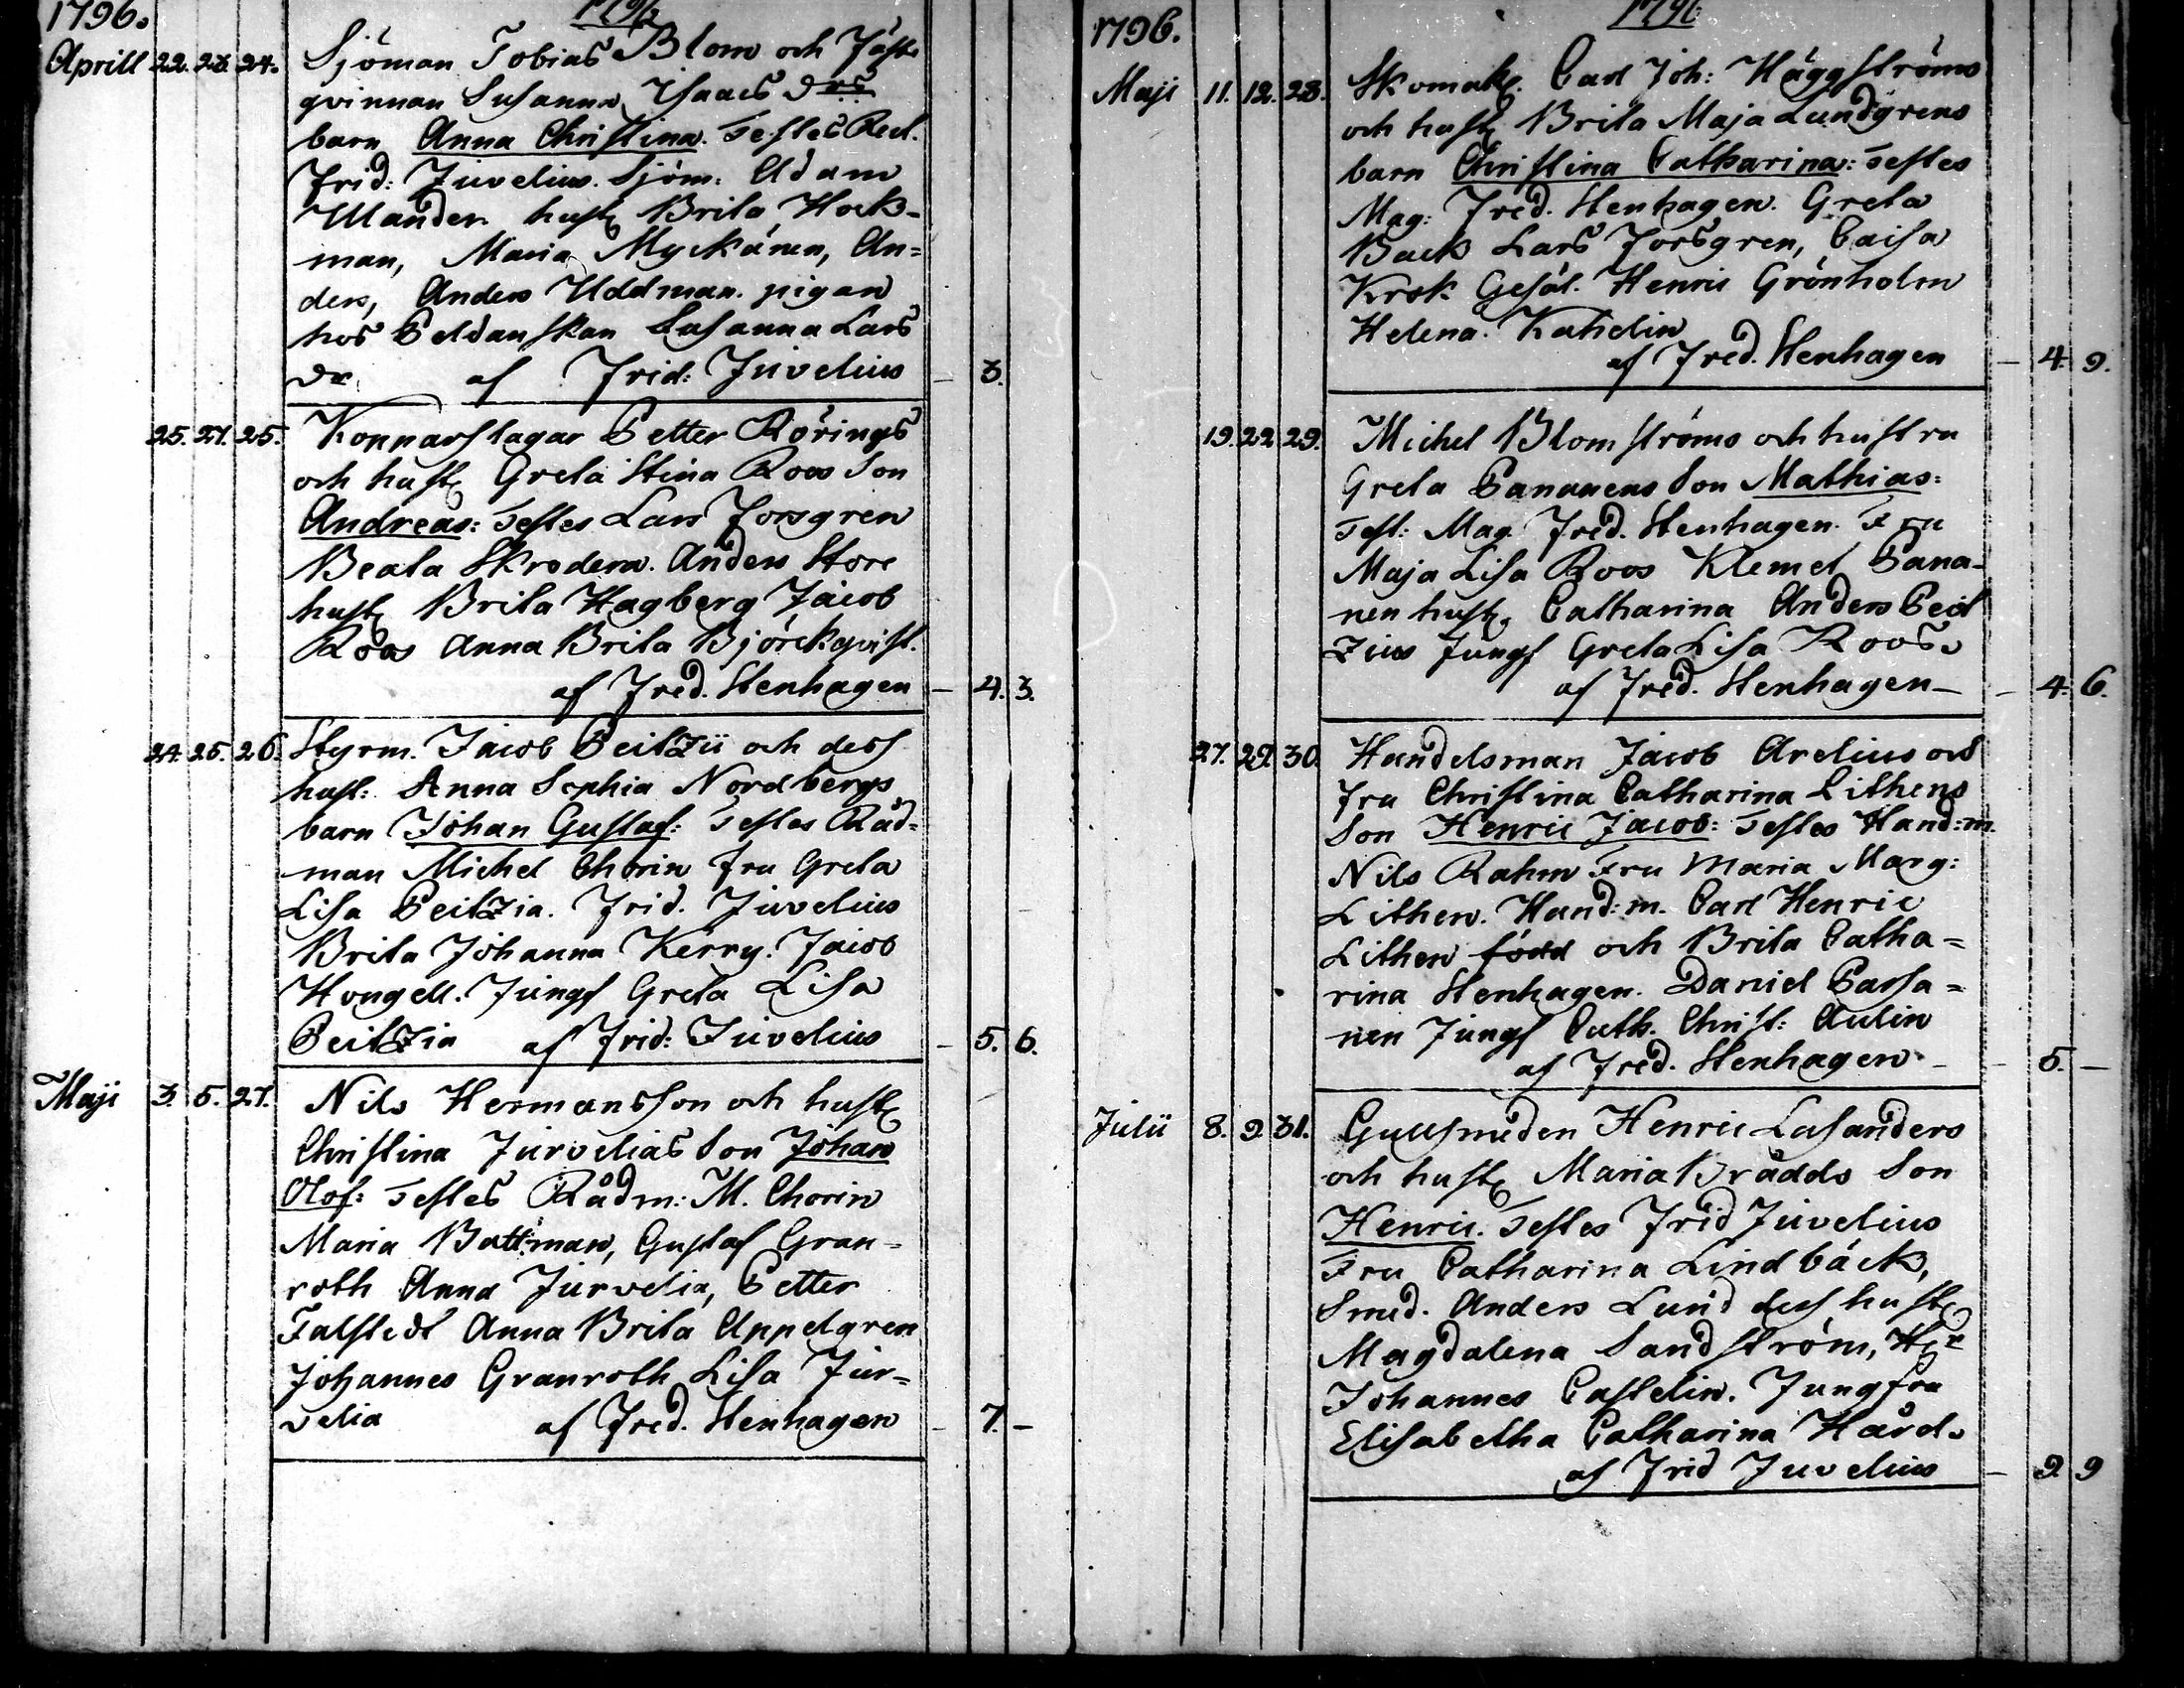 1796.
1796
Aprill 22. 23. 24. Sjöman Tobias Blom och Fäste
qvinnan Susanna Isaacs drs
barn Anna Christina. Testes Rect.
Frid: Juvelius. Sjöm: Adam
Ulander hust. Brita Hock-
man, Maria Myckänen, An=
ders, Anders Uddman. pigan
hos Peldanskan Susanna Lars
dr. af Frid: Juvelius – 3.
25. 27. 25. Kopparslagar Petter Rörings
och hust. Greta Stina Roos Son
Andreas: Testes Lars Forsgren
Beata Skrodera. Anders Store
hust. Brita Hagberg Jacob
Roos Anna Brita Björckqvist.
af Fred. Stenhagen – 4. 3.
24. 25. 26. Styrm. Jacob Peitzii och dess
hust: Anna Sophia Nordbergs
barn Johan Gustaf: Testes Råd=
man Michel Chorin fru Greta
Lisa Peitzia. Frid. Juvelius
Brita Johanna Kerry. Jacob
Hongell. Jungf Greta Lisa
Peitzia af Frid: Juvelius – 5. 6.
Maji 3. 5. 27. Nils Hermansson och hust.
Christina Jurvelias Son Johan
Olof: Testes Rådm: M. Chorin
Maria Battman, Gustaf Gran-
roth Anna Jurvelia, Petter
Falstedt Anna Brita Appelgren
Johannes Granroth Lisa Jur=
velia af Fred. Stenhagen – 7. –
1796.
1796
Maji 11. 12. 28. Skomak. Carl Joh: Häggströms
och hust. Brita Maja Lundgrens
barn Christina Catharina: Testes
Mag: Fred. Stenhagen. Greta
Back Lars Forsgren, Caisa
Krok Gesäl. Henric Grönholm
Helena. Kahelin
af Fred. Stenhagen – 4. 9.
19. 22. 29. Michel Blomströms och hustru
Greta Pananens Son Mathias:
Test: Mag. Fred. Stenhagen. Fru
Maja Lisa Roos Klemet Pana-
nen hust. Catharina Anders Peit
zius Jungf Greta Lisa Roos.
af Fred. Stenhagen – – 4. 6.
27. 29. 30. Handelsman Jacob Arelius och
fru Christina Catharina Lithens
Son Henric Jacob: Testes Hand:m.
Nils Rahm Fru Maria Marg:
Lithen. Hand:m. Carl Henric
Lithen född och Brita Catha=
rina Stenhagen. Daniel Passa=
nen Jungf Cath. Christ: Aulin
af Fred. Stenhagen – – 5. –
Julii 8. 9. 31. Gullsmeden Henric Lasanders
och hust. Maria Brädds Son
Henric. Testes Frid Juvelius
Fru Catharina Lindbäck,
Smed. Anders Lund dess hust.
Magdalena Sandström, Hr
Johannes Castelin. Jungfru
Elisabetha Catharina Hård.
af Frid Juvelius – 9. 9